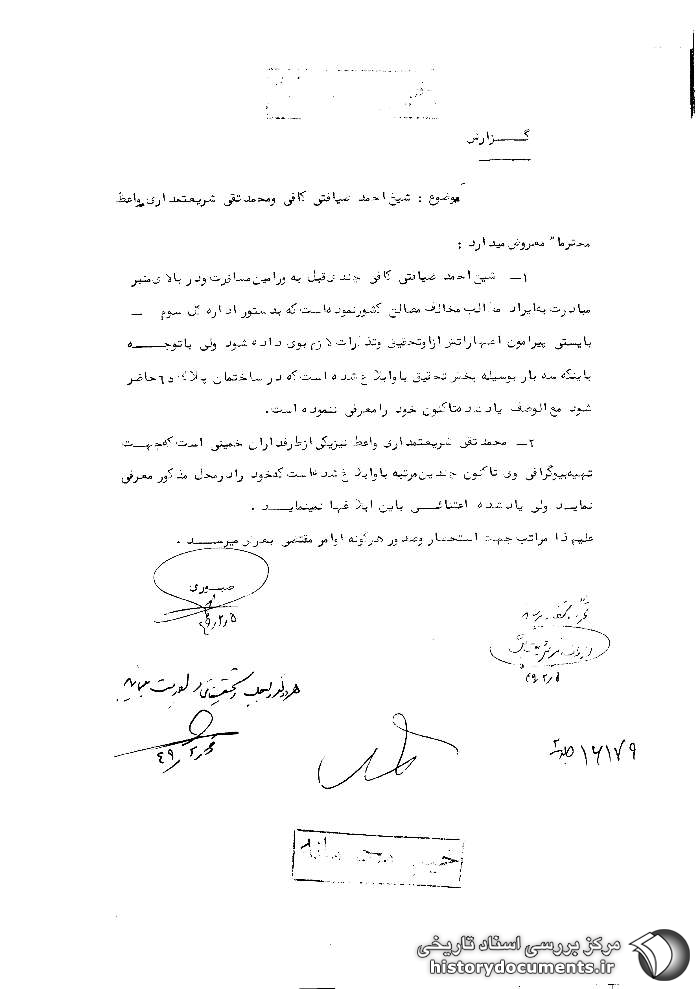 گزارش
موضوع : شیخ احمد ضیافتی کافی ومحمدتقی شریعتمداری واعظ
محترما" معروض میدارد :
۱ــ شیخ احمد ضیافتی کافی چندی قبل به ورامین مسافرت ودر بالای منبر
مبادرت به ایراد مطالب مخالف مصالح کشورنموده است که بدستور اداره کل سوم ــ
بایستی پیرامون اظهاراتش ازاوتحقیق وتذکرات لازم بوی داده شود ولی باتوجه
باینکه سه بار بوسیله بخش تحقیق باوابلاغ شده است که در ساختمان پلاک حاضر
شود مع الوصف یادشده تاکنون خود رامعرفی ننموده است.
۲ــ محمدتقی شریعتمداری واعظ نیزیکی ازطرفداران خمینی است که جهت
تهیه بیوگرافی وی تاکنون چندین مرتبه باوابلاغ شده است که خود رادرمحل مذکور معرفی
نماید ولی یادشده اعتنائی باین ابلاغها نمینماید .
علیهذا مراتب جهت استحضار وصدور هرگونه اوامر مقتضی بعرض میرسد .
صبوری
۴۹٫۲٫۵
۴۹٫۲٫۵
هر دو نفر
۴۹٫۲٫
۱۶۱۷۹
خیلی محرمانه
مرکز بررسی اسناد تاریخی
historydocuments.ir